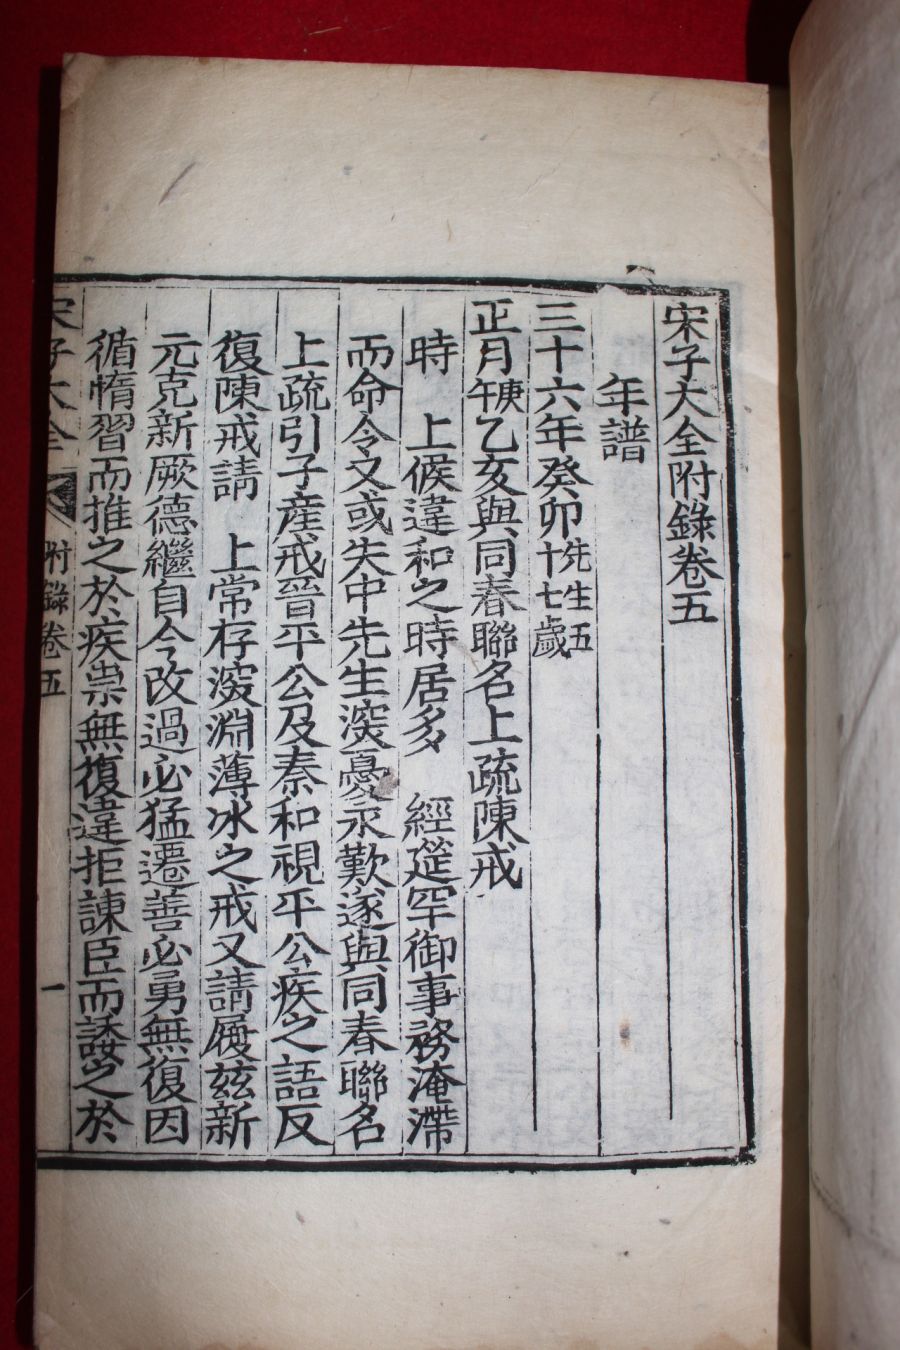 宋子大全附錄卷五
年譜
三十六年癸卯先生五十七歲
正月庚午乙亥與同春聯名上疏陳戒
時 上候違和之時居多 經筵罕御事務淹滯
而命令又或失中先生深憂永歎遂與同春聯名
上疏引子產戒晉平公及秦和視平公疾之語反
復陳戒請 上常存深淵薄冰之戒又請履玆新
元克新厥德繼自今改過必猛遷善必勇無復因
循惰習而推之於疾祟無復違拒諫臣而諉之於
宋子大全 附錄卷五 一